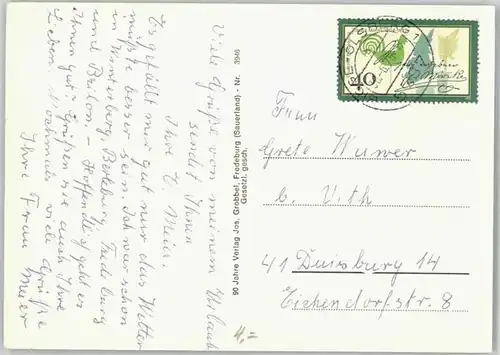 Viele Grüße von meinem Urlaub
sendet Ihnen
Ihre C. Meier.
Es gefällt mir gut nur das Wetter
müßte besser sein. Ich war schon
in Winterberg, Berleburg, Fredeburg
und Brilon – Hoffendlich geht es
Ihnen gut? Grüßen sie auch Ihre
Lieben. Nochmals viele Grüße
Ihre Frau Meier
90 Jahre Verlag Jos. Grobbel, Fredeburg (Sauerland) - Nr. 3946
Gesetzl. gesch.
40
Frau
Grete Wuwer
b. Vith
41 Duisburg 14
Eichendorfstr. 8
4,=